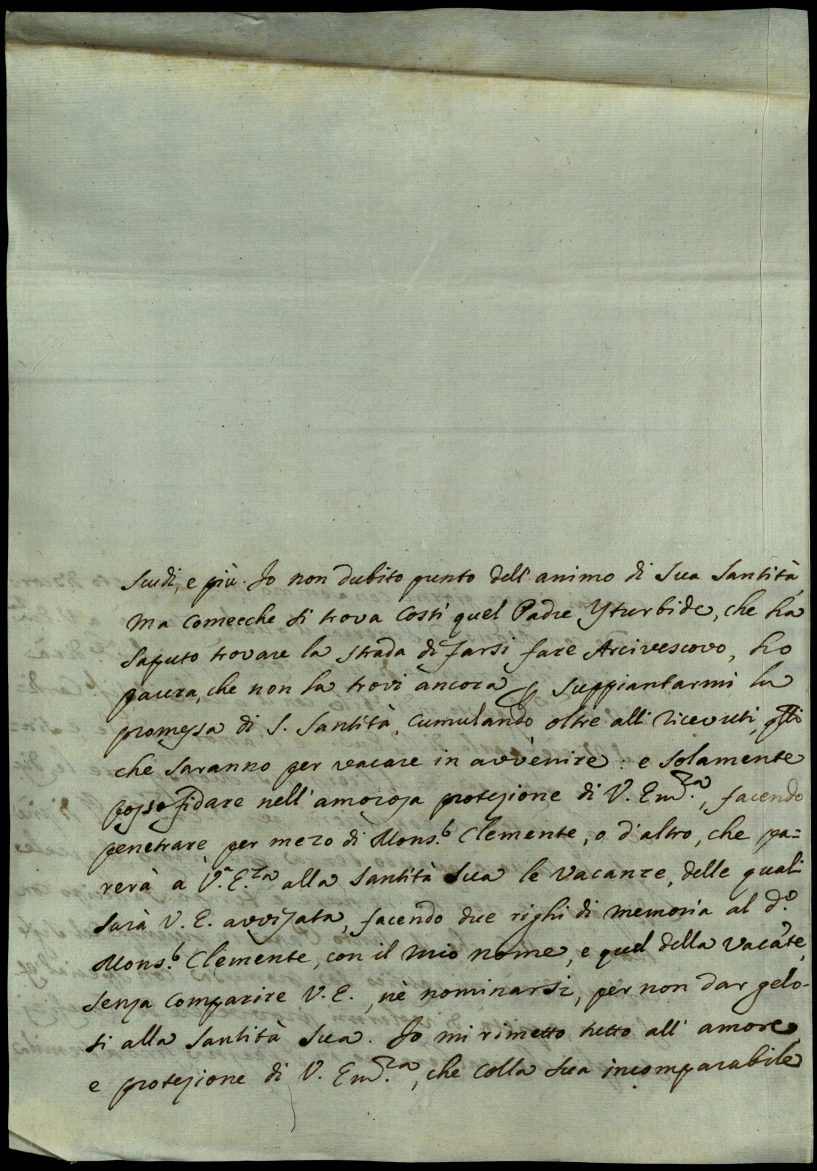 scudi, e più. Io non dubito punto dell'animo di Sua Santità,
ma comecche si trova costì quel Padre Yturbide, che hà
saputo trovare la strada di farsi fare Arcivescovo, ho
paura, che non la trovi ancora p suppiantarmi la
promessa di S. Santità, cumulando oltre alli ricevuti, qlli
che saranno per vacare in avvenire: e solamente
posso fidare nell'amorosa protezione di V. Em.za, facendo
penetrare per mezo di Mons.r Clemente, o d'altro, che pa=
rerà à V.a E.za alla Santità Sua le vacanze, delle quali
sarà V. E. avvisata, facendo due righi di memoria al d.o
Mons.r Clemente, con il mio nome, e quel della vacãte,
senza comparire V. E., nè nominarsi, per non dar gelo-
si alla Santità Sua. Io mi rimetto tutto all'amore,
e protezione di V. Em.za, che colla sua incomparabile